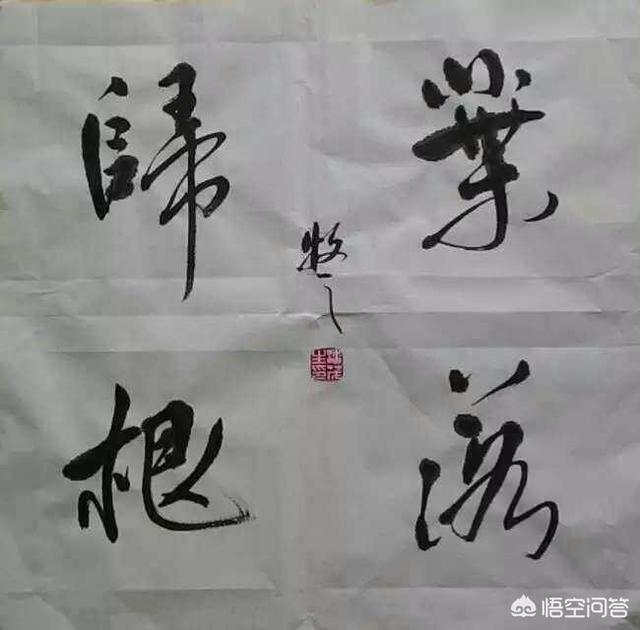 葉落
歸根
牧之
悟空问答